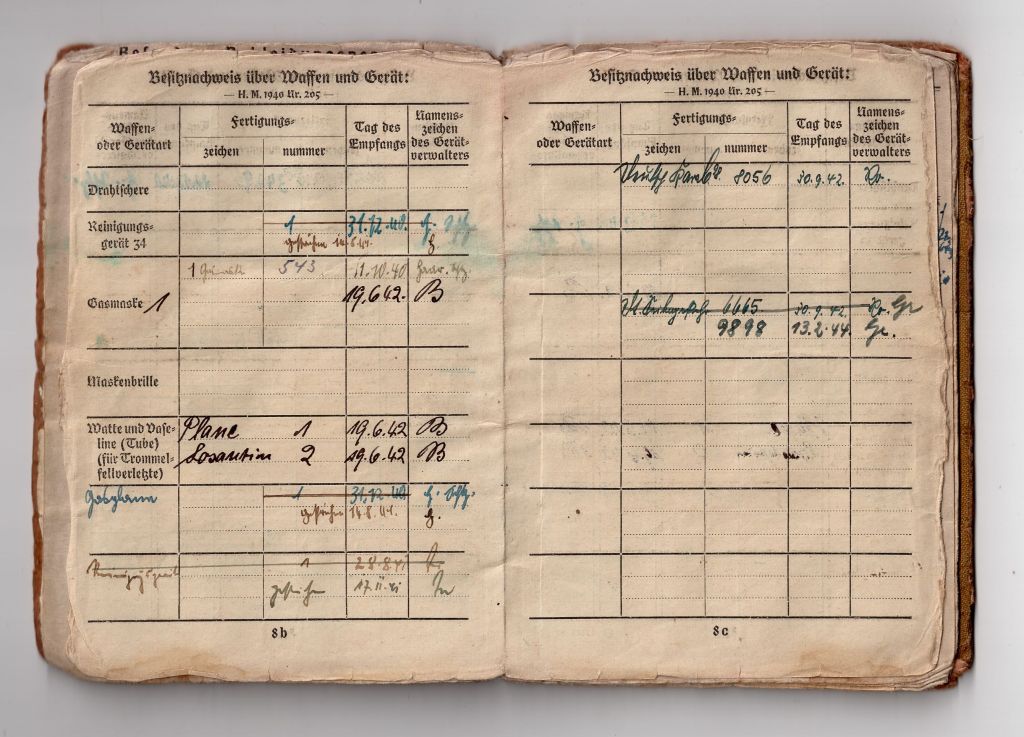 Besitznachweis über Waffen und Gerät:
— H. M. 1940 Nr. 205 —
Waffen- oder Gerätart
Fertigungs-
zeichen
nummer
Tag des Empfangs
Namens-
zeichen
des Gerät-
verwalters
Drahtschere
Reinigungs-
gerät 34
1 31.12.40.
gestrichen 14.8.41.
1 543 11.10.40
Gasmaske 1 19.6.42. B
Maskenbrille
Watte und Vase-
line (Tube)
(für Trommel-
fellverletzte)
Plane 1 19.6.42 B
Losantin 2 19.6.42 B
Gasplane 1 31.12.40
gestrichen 14.8.41.
1 28.8.41
gestrichen 17.11.41
8b
Besitznachweis über Waffen und Gerät:
— H. M. 1940 Nr. 205 —
Waffen-
oder Gerätart
Fertigungs-
zeichen
nummer
Tag des
Empfangs
Namens-
zeichen
des Gerät-
verwalters
8056 30.9.42.
6665 30.9.42.
9898 13.2.44.
8c